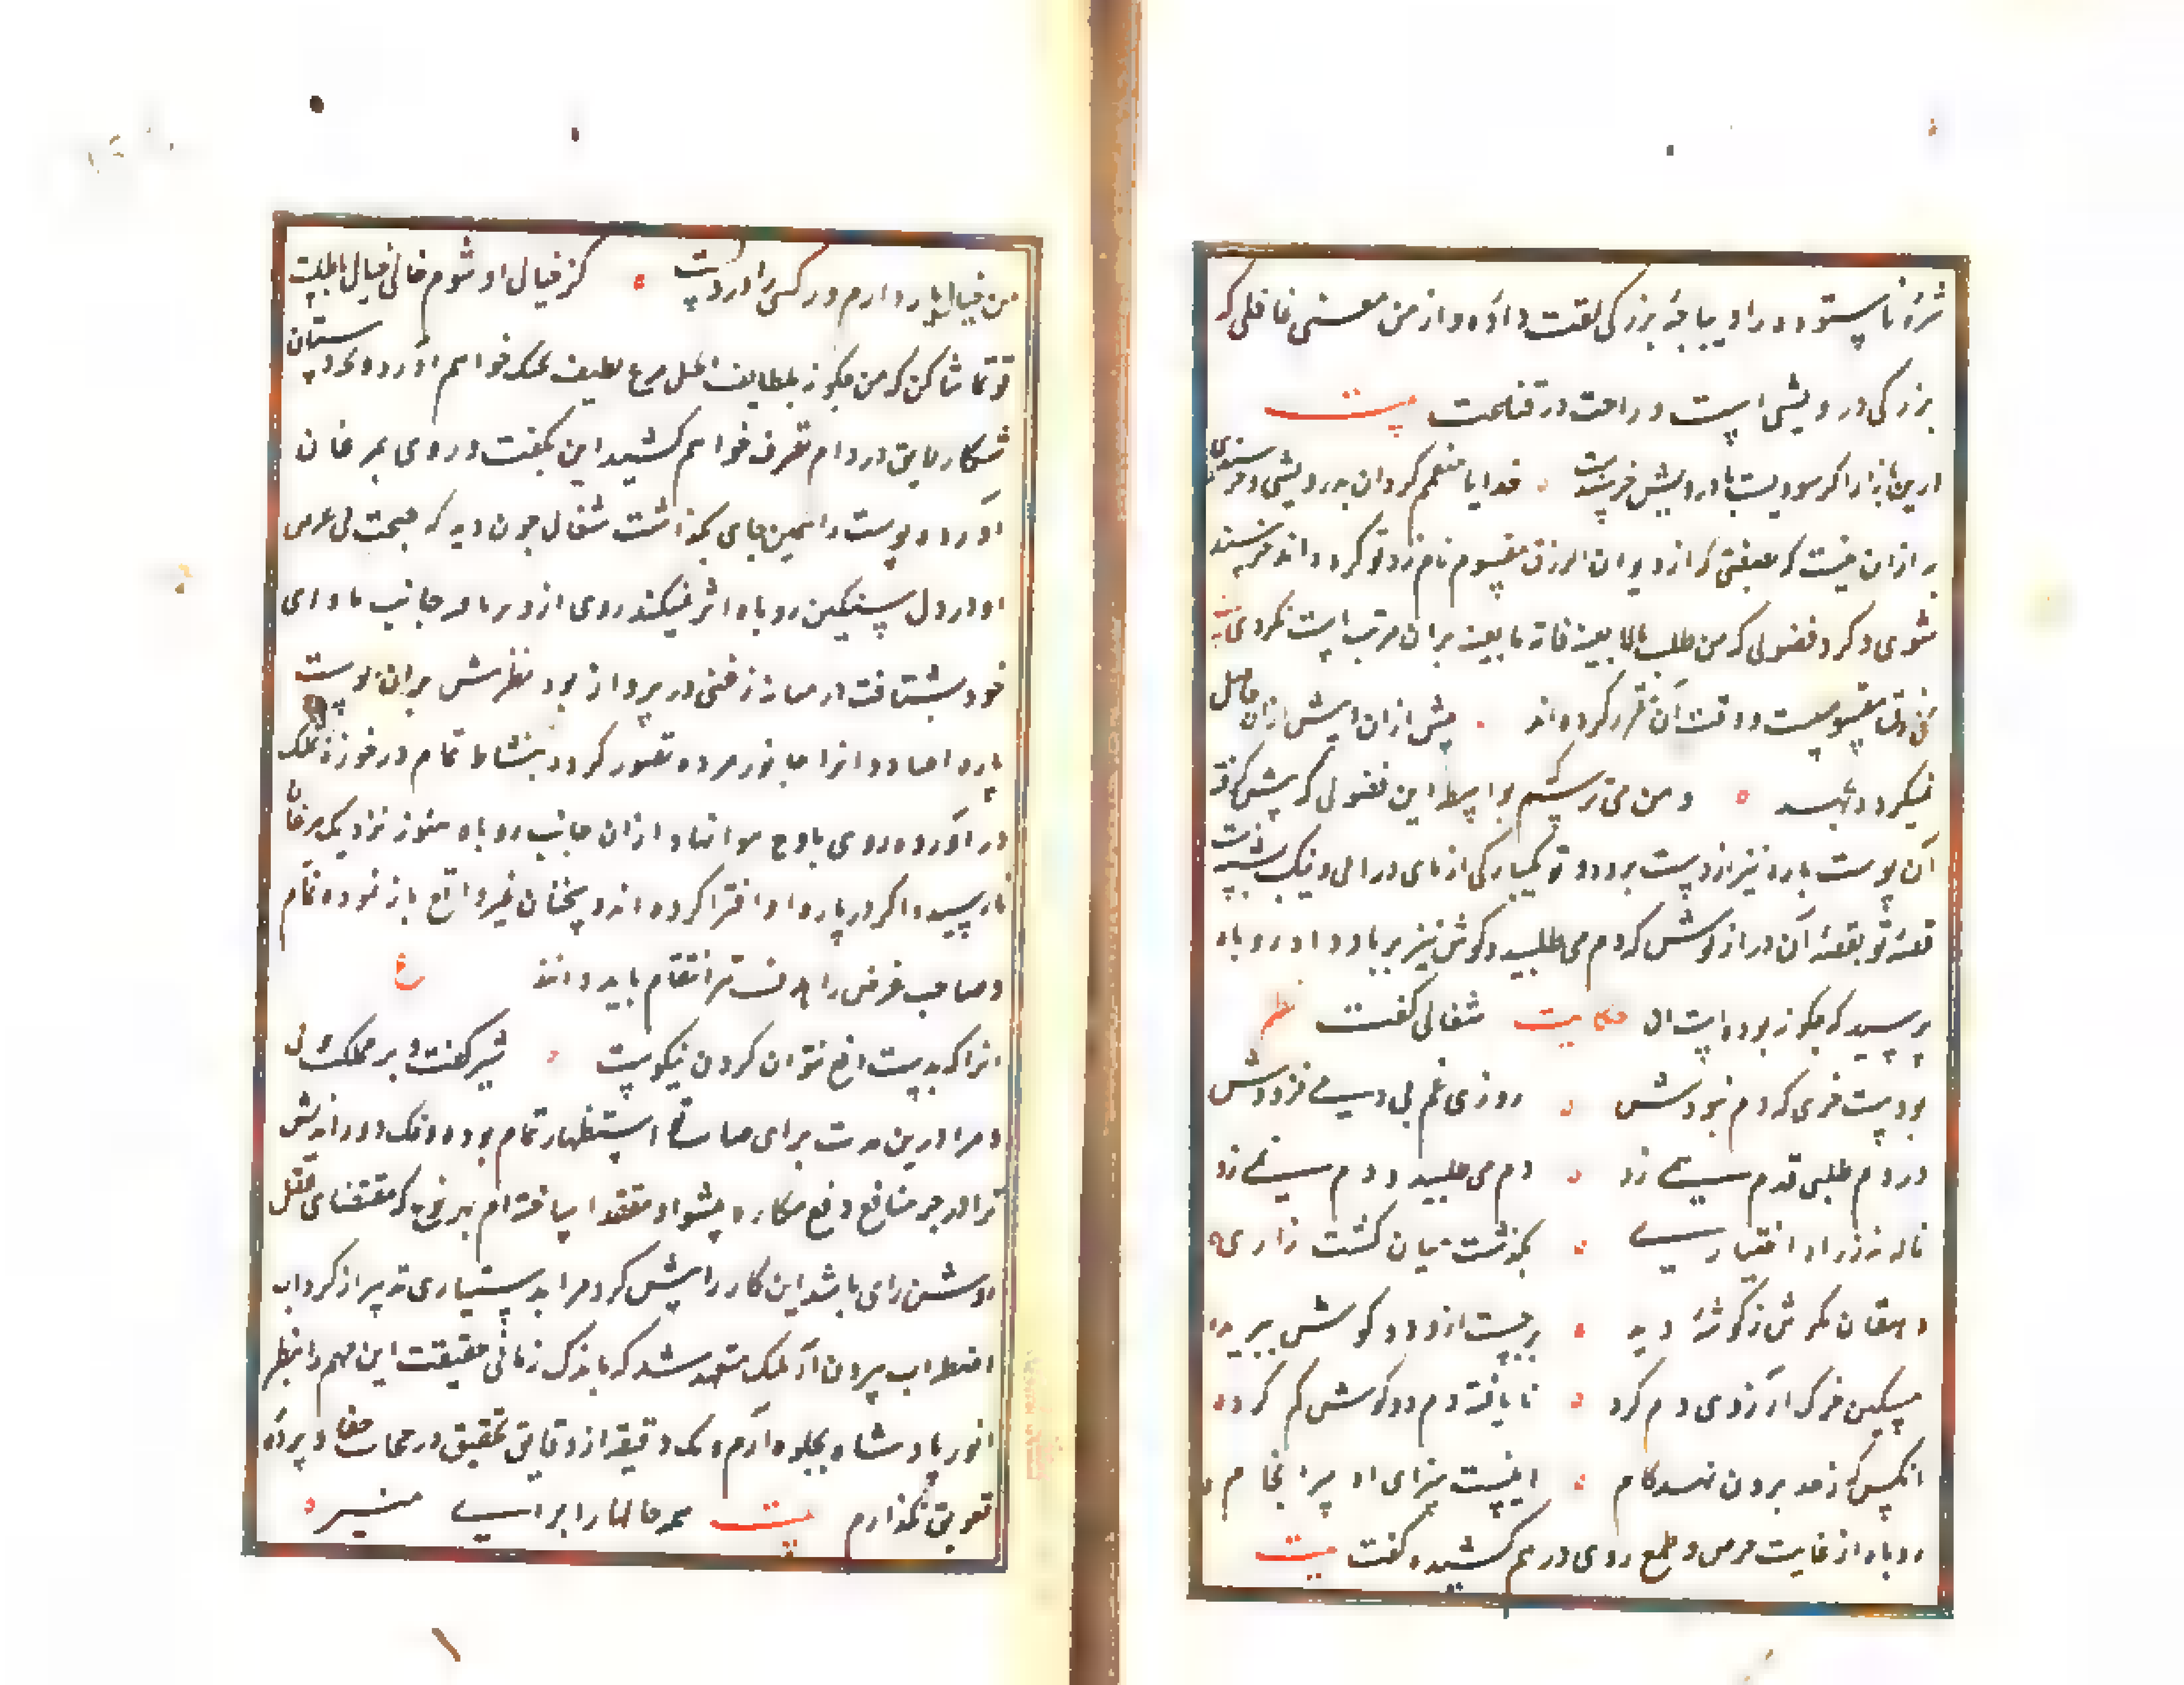 شره ناستوده را دیباجهٔ بزرکی لقت داده و از من معنی غافلی که
بزرکی در درویشی است و راحت در قناعت بیت
درین بازار اکر سودیست با درویش خرسندست خدایا منعمم کردان به درویشی و خرسندی
به ازان نیست که بصفتی که از دیوان الرزق مقسوم نام زد تو کرده‌اند خرسند
شوی و کرد فضولی که من طلب مالا یعنیه فاته ما یعنیه بران مرتب است نکردی بیت
رزق مقسومست و وقت آن مقرر کرده‌اند بیش ازان و پیش ازان حاصل
نمیکردد بجهد و من می‌ترسم که بواسطه این فضولی که پیش کرفته
آن پوست پاره نیز از دست برود و تو بیکبارکی از پای درائی و نیک شبیهست
قصهٔ تو بقصهٔ آن دراز کوش که دم می‌طلبید و کوش نیز بر باد داد روباه
پرسید که چکونه بوده است ان حکایت شغال کفت نظم
بودست خری که دم نبودش روزی غم بی دمی فزودش
در دم طلبی قدم همی زد دم می‌طلبید و دم نمی زد
ناکه نه ز راه اختیاری بکذشت میان کشت زاری
دهقان مکرش ز کوشهٔ دید برجست ازو دو کوش ببرید
مسکین خرک آرزوی دم کرد نایافته دم دو کوش کم کرد
انکس که ز حد برون نهد کام اینست سزای او سرانجام
روباه از غایت حرص و طمع روی در هم کشیده کفت بیت
من خیال یار دارم ور کسی را در دلست کز خیال او شوم خالی خیال باطلست
تو تماشا کن که من چکونه بلطایف الحیل مرغ لطیف بچنک خواهم آورد و بدستان
شکار بدین در دام تصرف خواهم کشید این بکفت و روی بمرغان
آورد و پوست را همین جای بکذاشت شغال چون دید که نصیحت بی غرض
او در دل سنکین روباه اثر نمیکند روی ازو برتافته جانب ماوای
خود بشتافت در میانه زغنی در پرواز بود نظرش بران پوست
پاره افتاد و انرا جانور مرده تصور کرد و بنشاط تمام در حوزه تملک
در آورده روی باوج هوا نهاد ازان جانب روباه هنوز نزدیک مرغان
نارسیده اکر در باره او افترا کرده‌اند و سخنان غیر واقع باز نموده تمام
و صاحب غرض را هدف تیر انتقام باید دانند ع
انرا که بدیست دفع نتوان کردن نیکوست شیر کفت و بر مملکت
و مرا درین مدت برای صایب استظهار تمام بوده و نیک دوراندیش
ترا در جر منافع و دفع مکاره پیشوا و مقتدا ساخته‌ام بهر نوع که مقتضای عقل
روشن رای باشد این کار را پیش کیر و مرا بدستیاری تدبیر از کرداب
اضطراب بیرون آر ملک متعهد شد که باندک زمانی حقیقت این مهم را بنظر
انور پادشاه بجلوه آرم و یک دقیقه از دقایق تحقیق در حجاب خفا و پرده
تعویق نکذارم بیت همه حالها را برای منیر